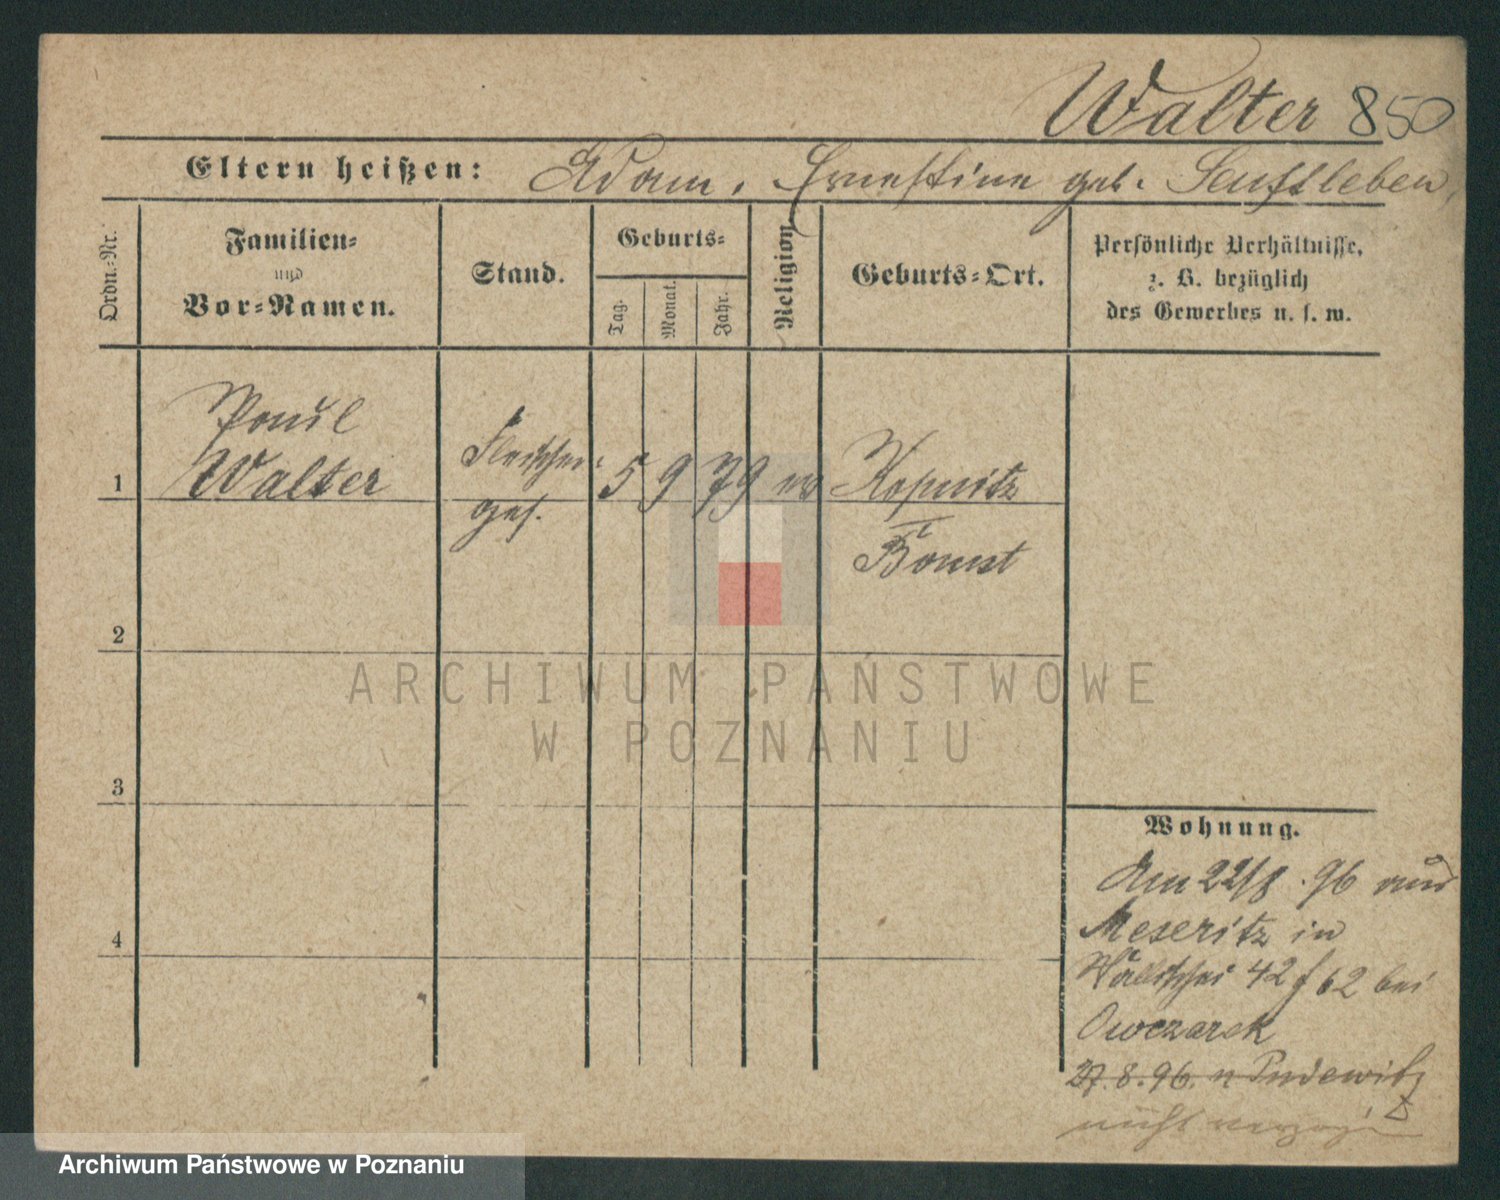 Walter 850
Eltern heißen: Adam, Ernestine geb. Senftleben,
Ordn.-Nr.
Familien-
und
Vor-Namen.
Stand.
Geburts-
Tag.
Monat.
Jahr.
Religion.
Geburts-Ort.
Persönliche Verhältnisse,
z. B. bezüglich
des Gewerbes u. s. w.
1
Paul
Walter
Fleischer
ges.
5 9 79 ev Kopnitz
Bomst
2
ARCHIWUM PAŃSTWOWE
W POZNANIU
3
4
Wohnung.
Am 22/8. 96 aus
Meseritz in
Wallischei 42 f 62 bei
Owczarek
27.8.96. n Pudewitz
nicht verzogen
Archiwum Państwowe w Poznaniu